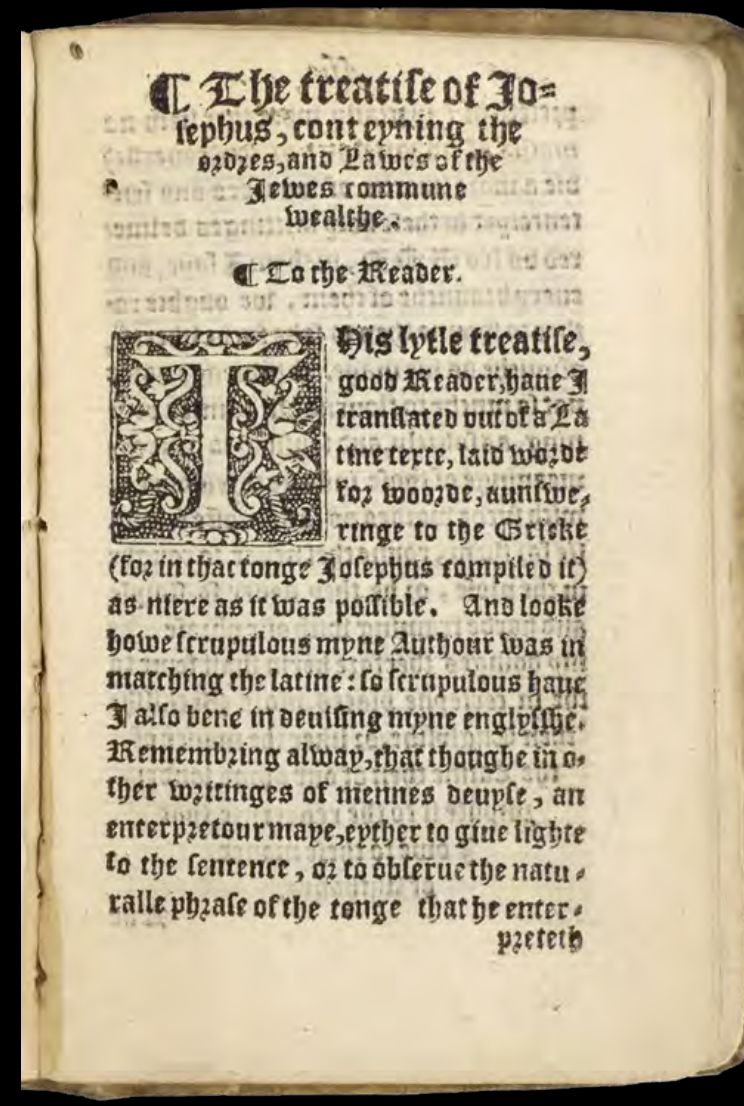 ¶ The treatiſe of Jo=
ſephus, conteyning the
ordres, and Lawes of the
Jewes commune
wealthe.
¶ To the Reader.
THis lytle treatiſe,
good Reader, haue I
tranſlated out of a La
tine texte, laid worde
for woorde, aunſwe-
ringe to the Grieke
(for in that tonge Joſephus compiled it)
as niere as it was poſſible. And looke
howe ſcrupulous myne Authour was in
matching the latine: ſo ſcrupulous haue
I alſo bene in deuiſing myne englyſſhe.
Remembring alway, that thoughe in o-
ther writinges of mennes deuyſe, an
enterpretour maye, eyther to giue lighte
to the ſentence, or to obſerue the natu-
ralle phraſe of the tonge that he enter-
preteth